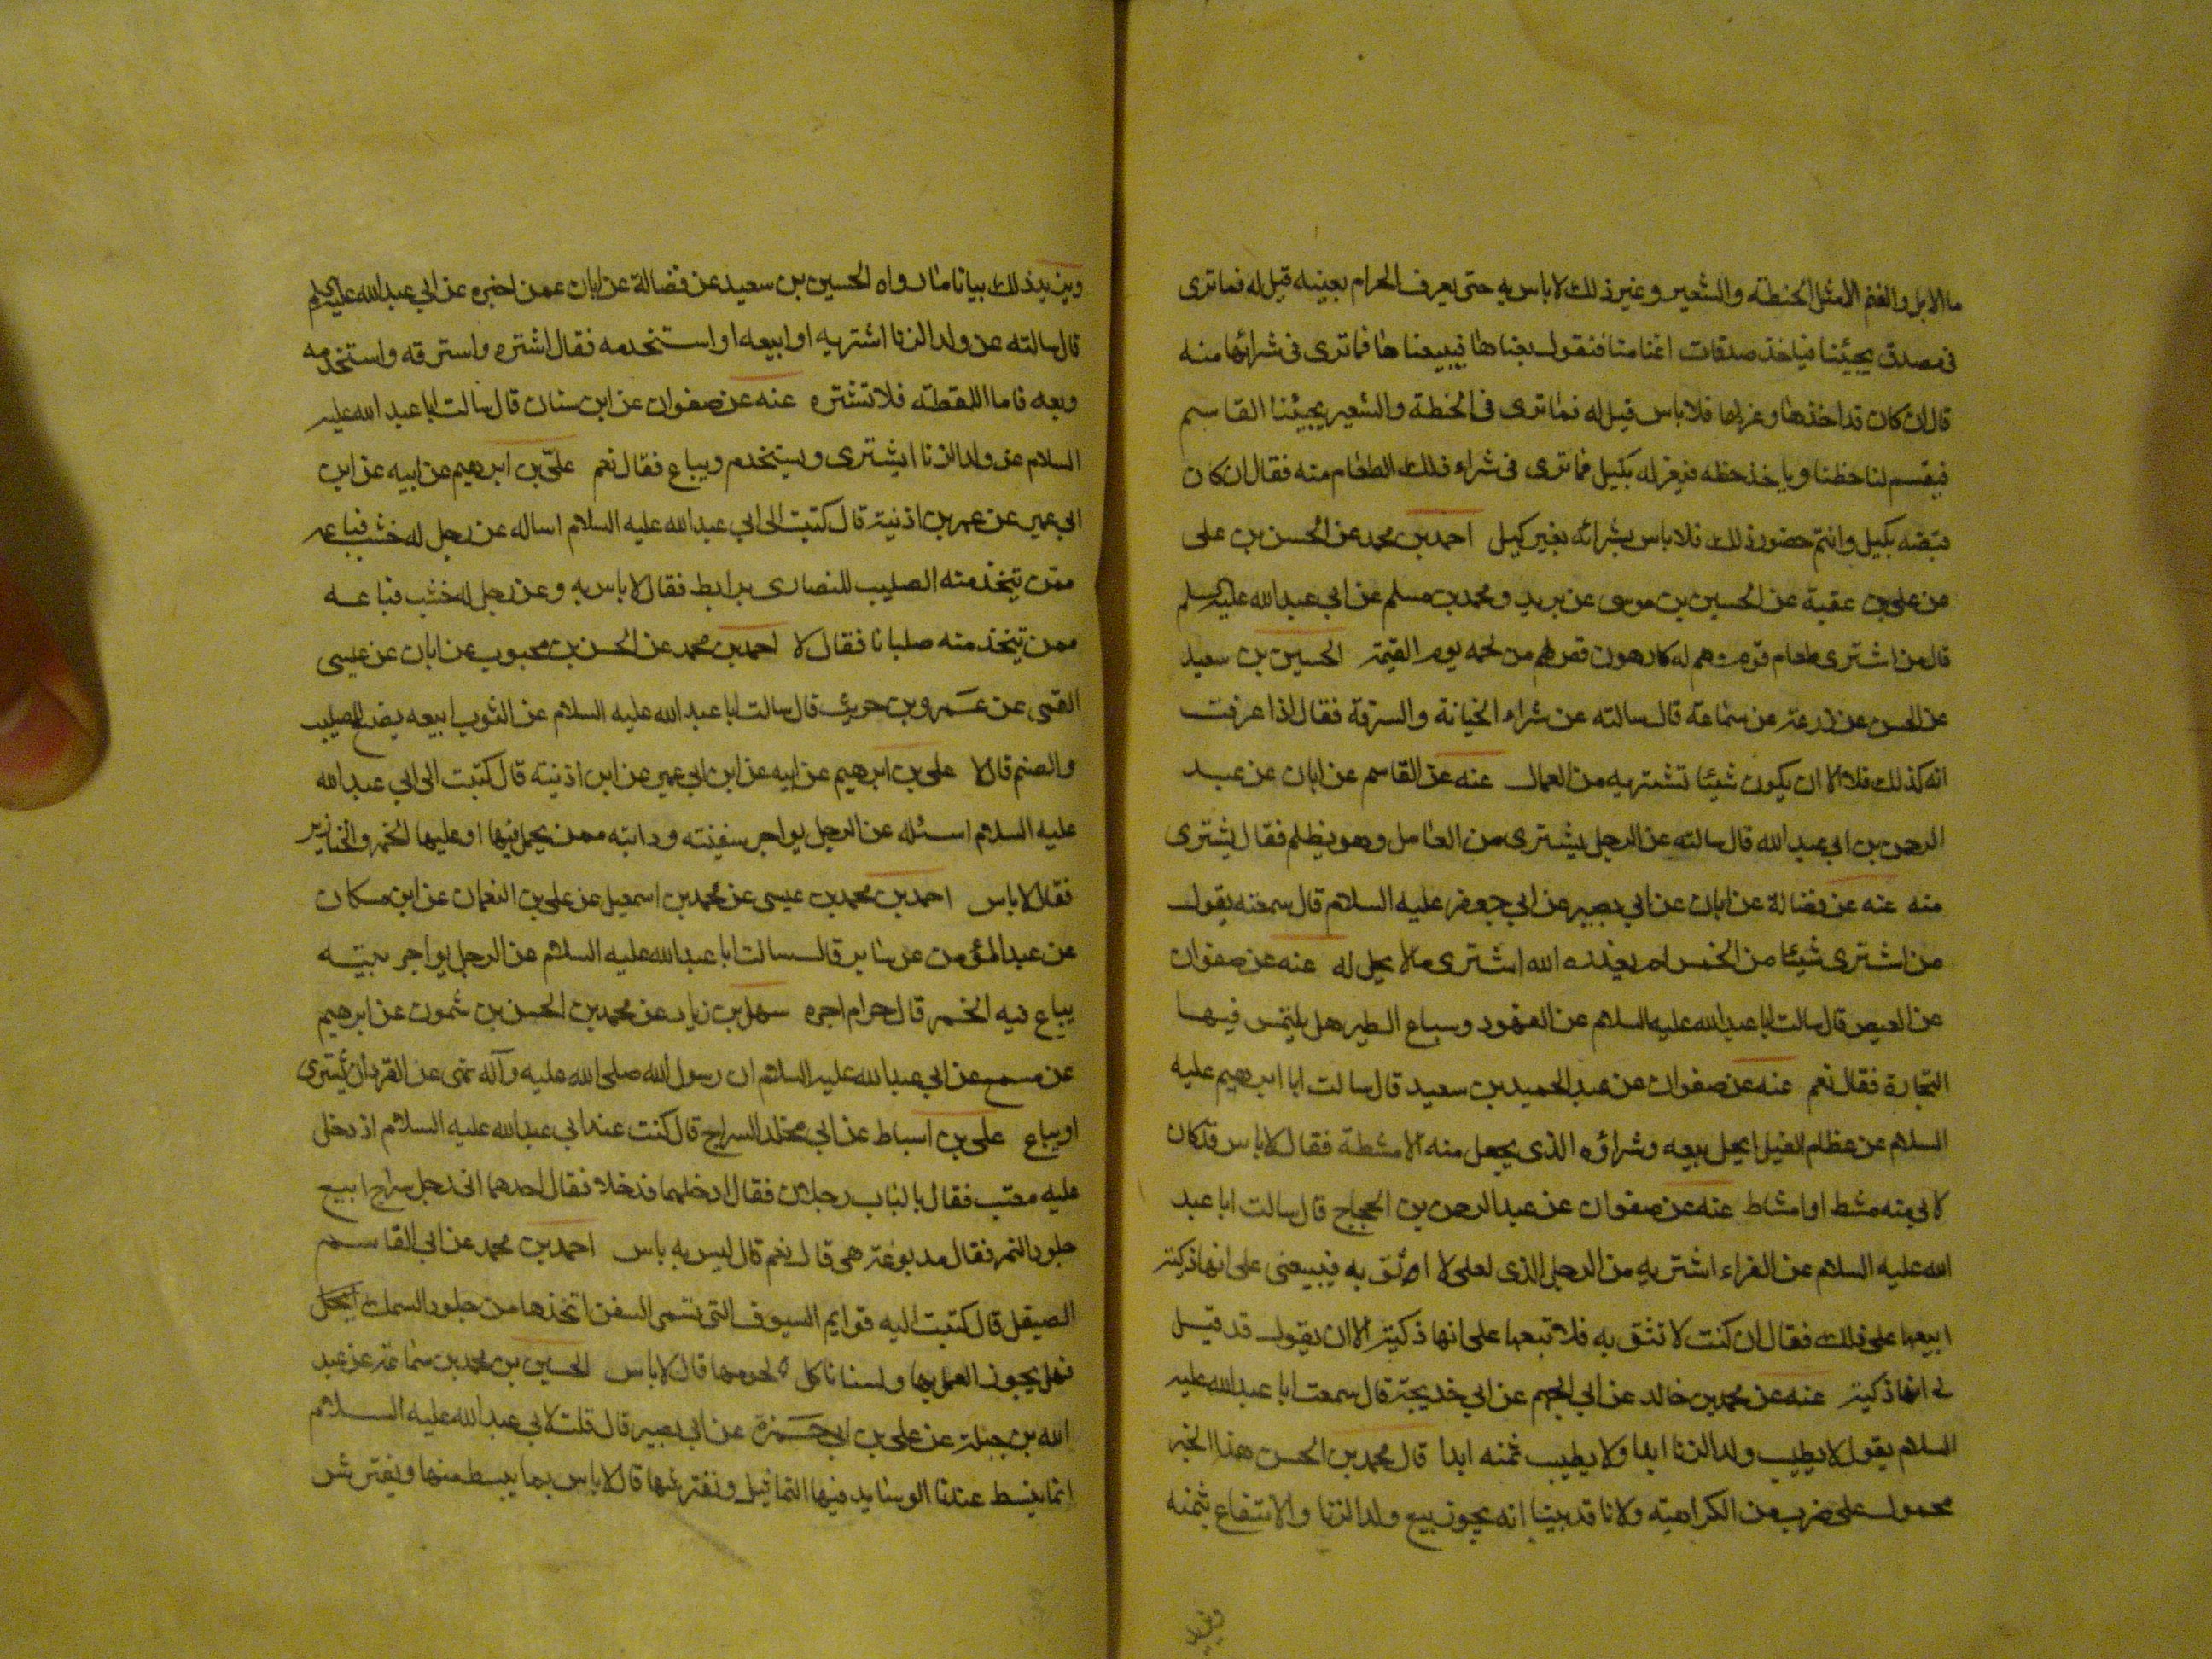 ما الابل والغنم الا مثل الحنطة والشعير وغير ذلك لا باس به حتى يعرف الحرام بعينه قيل له فما ترى
في مصدق يجيئنا فياخذ صدقات اغنامنا فنقول بعناها فيبيعناها فما ترى في شرائها منه
قال ان كان قد اخذها وعزلها فلا باس قيل له فما ترى في الحنطة والشعير يجيئنا القاسم
فيقسم لنا حظنا وياخذ حظه فيعزله بكيل فما ترى في شراء ذلك الطعام منه فقال ان كان
قبضه بكيل وانتم حضور ذلك فلا باس بشرائه بغير كيل احمد بن محمد عن الحسن بن على
عن علي بن عقبة عن الحسين بن موسى عن بريد ومحمد بن مسلم عن ابي عبد الله عليه السلم
قال من اشترى طعام قوم وهم له كارهون قص لهم من لحمه يوم القيمة الحسين بن سعيد
عن الحسن عن زرعة عن سماعة قال سالته عن شراء الخيانة والسرقة فقال اذا عرفت
انه كذلك فلا الا ان يكون شيئا تشتريه من العمال عنه عن القاسم عن ابان عن عبد
الرحمن بن ابي عبد الله قال سالته عن الرجل يشترى من العامل وهو يظلم فقال يشترى
منه عنه عن فضالة عن ابان عن ابي بصير عن ابي جعفر عليه السلام قال سمعته يقول
من اشترى شيئا من الخمس لم يعذره الله اشترى ما لا يحل له عنه عن صفوان
عن العيص قال سالت ابا عبد الله عليه السلام عن الفهود وسباع الطير هل يلتمس فيها
التجارة فقال نعم عنه عن صفوان عن عبد الحميد بن سعيد قال سالت ابا ابرهيم عليه
السلام عن عظام الفيل ايحل بيعه وشراؤه الذى يجعل منه الامشطة فقال لا باس قد كان
لابي منه مشط او امشاط عنه عن صفوان عن عبد الرحمن بن الحجاج قال سالت ابا عبد
الله عليه السلام عن الفراء اشتريه من الرجل الذى لعلى لا اوثق به فيبيعنى على انها ذكية
ابيعها على ذلك فقال ان كنت لا تثق به فلا تبعها على انها ذكية الا ان يقول قد قيل
لي انها ذكية عنه عن محمد بن خالد عن ابي الجهم عن ابي خديجة قال سمعت ابا عبد الله عليه
السلام يقول لا يطيب ولد الزنا ابدا ولا يطيب ثمنه ابدا قال محمد بن الحسن هذا الخبر
محمول على ضرب من الكراهية ولانا قد بينا انه يجوز بيع ولد الزنا والانتفاع بثمنه
ويزيد
ويزيد ذلك بيانا ما رواه الحسين بن سعيد عن فضالة عن ابان عمن اخبره عن ابي عبد الله عليه السلم
قال سالته عن ولد الزنا اشتريه او ابيعه او استخدمه فقال اشتره واسترقه واستخدمه
وبعه فاما اللقطة فلا تشتره عنه عن صفوان عن ابن سنان قال سالت ابا عبد الله عليه
السلام عن ولد الزنا ايشترى ويستخدم ويباع فقال نعم على بن ابرهيم عن ابيه عن ابن
ابي عمير عن عمر بن اذنية قال كتبت الى ابي عبد الله عليه السلام اساله عن رجل له خشب فباعه
ممن يتخذ منه الصليب للنصارى برابط فقال لا باس به وعن رجل له خشب فباعه
ممن يتخذ منه صلبانا فقال لا احمد بن محمد عن الحسن بن محبوب عن ابان عن عيسى
القمى عن عمرو بن حريث قال سالت ابا عبد الله عليه السلام عن التوب ابيعه يصنع للصليب
والصنم قال لا على بن ابرهيم عن ابيه عن ابن ابي عمير عن ابن اذنية قال كتبت الى ابي عبد الله
عليه السلام اسئله عن الرجل يواجر سفينته ودابته ممن يحمل فيها او عليها الخمر والخنازير
فقال لا باس احمد بن محمد بن عيسى عن محمد بن اسمعيل عن على بن النعمان عن ابن مسكان
عن عبد المؤمن عن صابر قال سالت ابا عبد الله عليه السلام عن الرجل يواجر بيته
يباع فيه الخمر قال حرام اجره سهل بن زياد عن محمد بن الحسن بن شمون عن ابرهيم
عن مسمع عن ابي عبد الله عليه السلام ان رسول الله صلى الله عليه وآله نهى عن القرد ان يشترى
او يباع على بن اسباط عن ابي مخلد السراج قال كنت عند ابي عبد الله عليه السلام اذ دخل
عليه معتب فقال بالباب رجلان فقال ادخلهما فدخلا فقال احدهما انى رجل سراج ابيع
جلود النمر فقال مدبوغة هى قال نعم قال ليس به باس احمد بن محمد عن ابي القاسم
الصيقل قال كتبت اليه قوايم السيوف التى تسمى السفن اتخذها من جلود السمك
فهل يجوز العمل بها ولسنا ناكل لحومها قال لا باس الحسين بن محمد بن سماعة عن عبد
الله بن جبلة عن على بن ابي حمزة عن ابي بصير قال قلت لابي عبد الله عليه السلام
انما يبسط عندنا الوسايد فيها التماثيل ونفترشها قال لا باس بما يبسط منها ويفترش